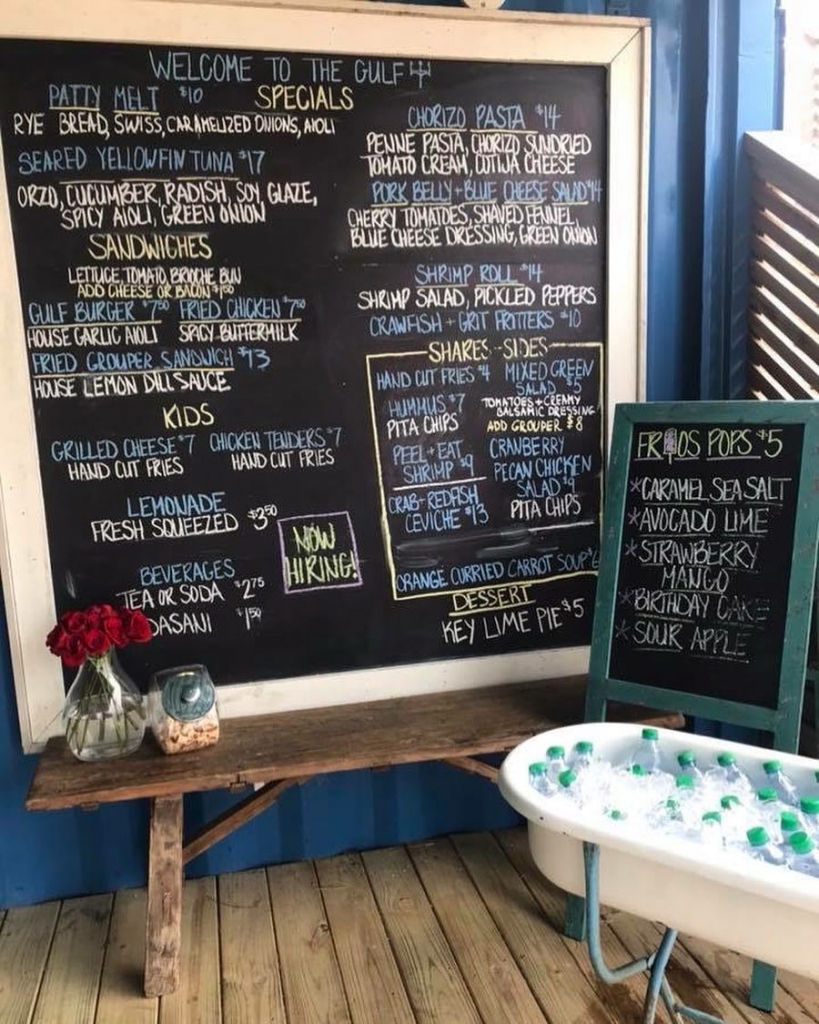 WELCOME TO THE GULF
SPECIALS
PATTY MELT $10
RYE BREAD, SWISS, CARAMELIZED ONIONS, AIOLI
SEARED YELLOWFIN TUNA $17
ORZO, CUCUMBER, RADISH, SOY, GLAZE,
SPICY AIOLI, GREEN ONION
CHORIZO PASTA $14
PENNE PASTA, CHORIZO, SUNDRIED
TOMATO CREAM, COTIJA CHEESE
PORK BELLY + BLUE CHEESE SALAD $14
CHERRY TOMATOES, SHAVED FENNEL,
BLUE CHEESE DRESSING, GREEN ONION
SHRIMP ROLL $14
SHRIMP SALAD, PICKLED PEPPERS
CRAWFISH + GRIT FRITTERS $10
SANDWICHES
LETTUCE, TOMATO, BRIOCHE BUN
ADD CHEESE OR BACON $1.50
GULF BURGER $7.50
HOUSE GARLIC AIOLI
FRIED CHICKEN $7.50
SPICY BUTTERMILK
FRIED GROUPER SANDWICH $13
HOUSE LEMON DILL SAUCE
KIDS
GRILLED CHEESE $7
HAND CUT FRIES
CHICKEN TENDERS $7
HAND CUT FRIES
LEMONADE
FRESH SQUEEZED $3.50
BEVERAGES
TEA OR SODA $2.75
DASANI $1.50
NOW
HIRING!
SHARES - SIDES
HAND CUT FRIES $4
HUMMUS $7
PITA CHIPS
PEEL + EAT
SHRIMP $9
CRAB + REDFISH
CEVICHE $13
MIXED GREEN
SALAD $5
TOMATOES + CREAMY
BALSAMIC DRESSING
ADD GROUPER $8
CRANBERRY
PECAN CHICKEN
SALAD $9
PITA CHIPS
ORANGE CURRIED CARROT SOUP $6
DESSERT
KEY LIME PIE $5
FRIOS POPS $5
*CARAMEL SEA SALT
*AVOCADO LIME
*STRAWBERRY
MANGO
*BIRTHDAY CAKE
*SOUR APPLE